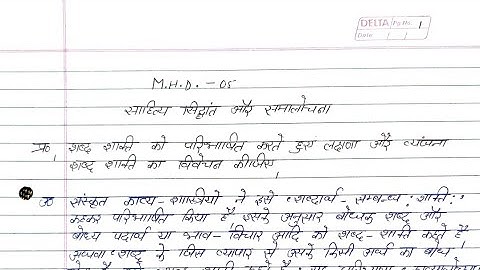 DELTA Pg No. 1
Date / /
M.H.D. - 05
साहित्य सिद्धांत और समालोचना
प्र० शब्द शक्ति को परिभाषित करते हुए लक्षणा और व्यंजना
1 शब्द शक्ति का विवेचन कीजिए।
उ० संस्कृत काव्य-शास्त्रियों ने इसे 'शब्दार्थ सम्बन्धः शक्तिः'
कहकर परिभाषित किया है। इसके अनुसार बोधक शब्द और
बोध्य पदार्थ या भाव-विचार आदि को शब्द-शक्ति कहते हैं
अथवा शब्द के जिस व्यापार से उसके किसी अर्थ का बोध